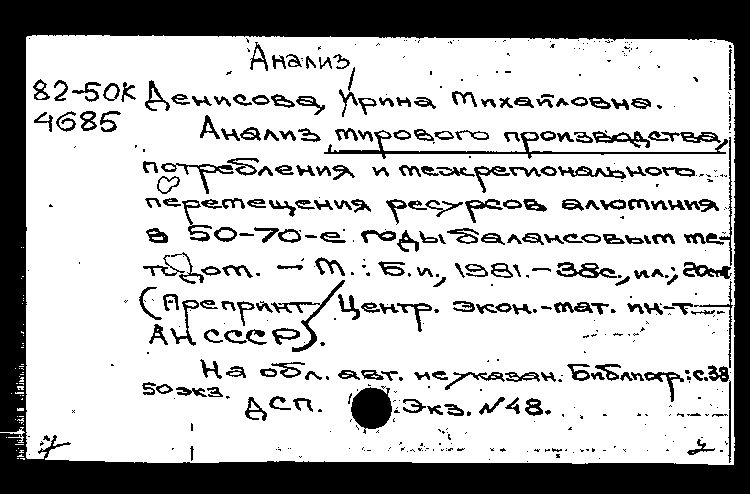 Анализ
82-50к Денисова, Ирина Михайловна.
4685 Анализ мирового производства,
потребления и межрегионального
перемещения ресурсов алюминия
в 50-70-е годы балансовым ме-
тодом. - М.: Б.и., 1981. - 38с., ил.; 20см
(Препринт Центр. экон.-мат. ин-т
АН СССР).
На обл. авт. не указан. Библиогр.: с.38
50экз.
ДСП. Экз. №48.